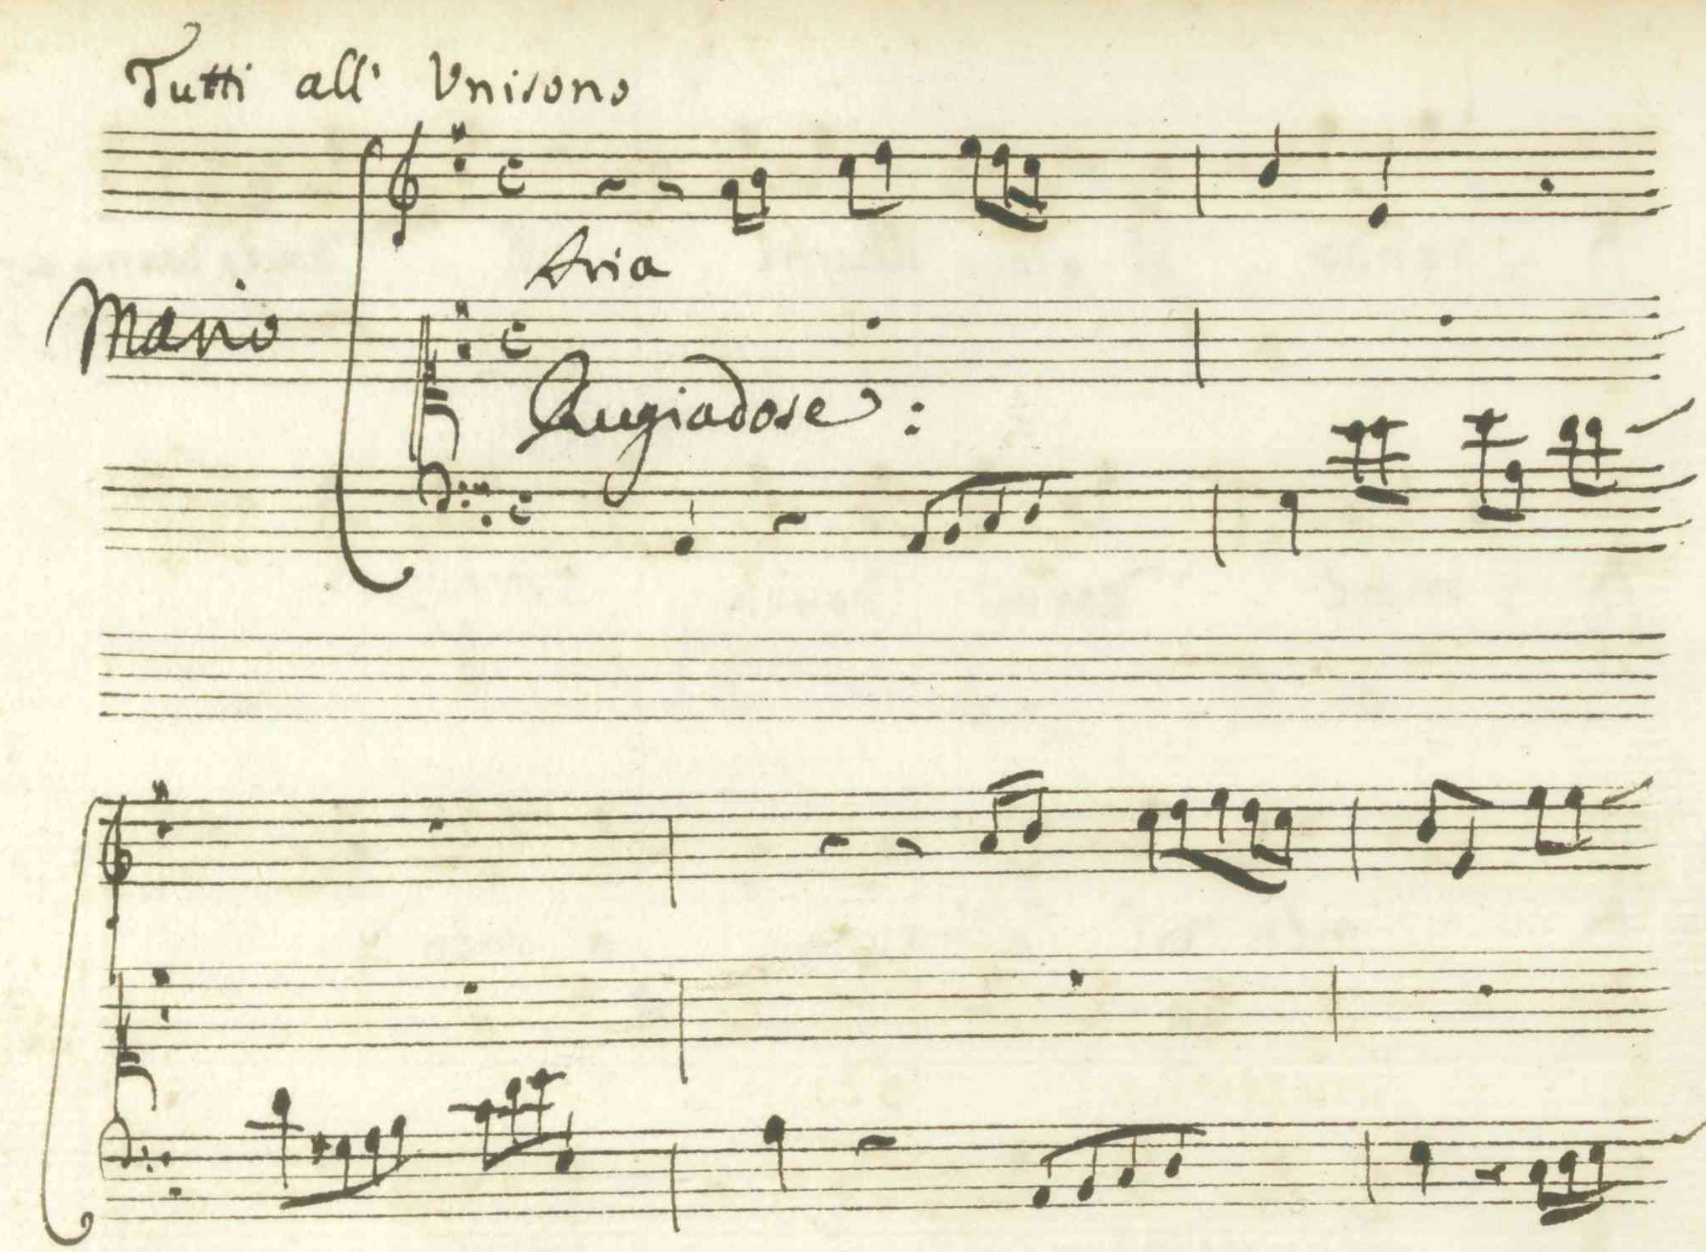 Tutti all' Vnisono
Aria
Mario
Rugiadose :